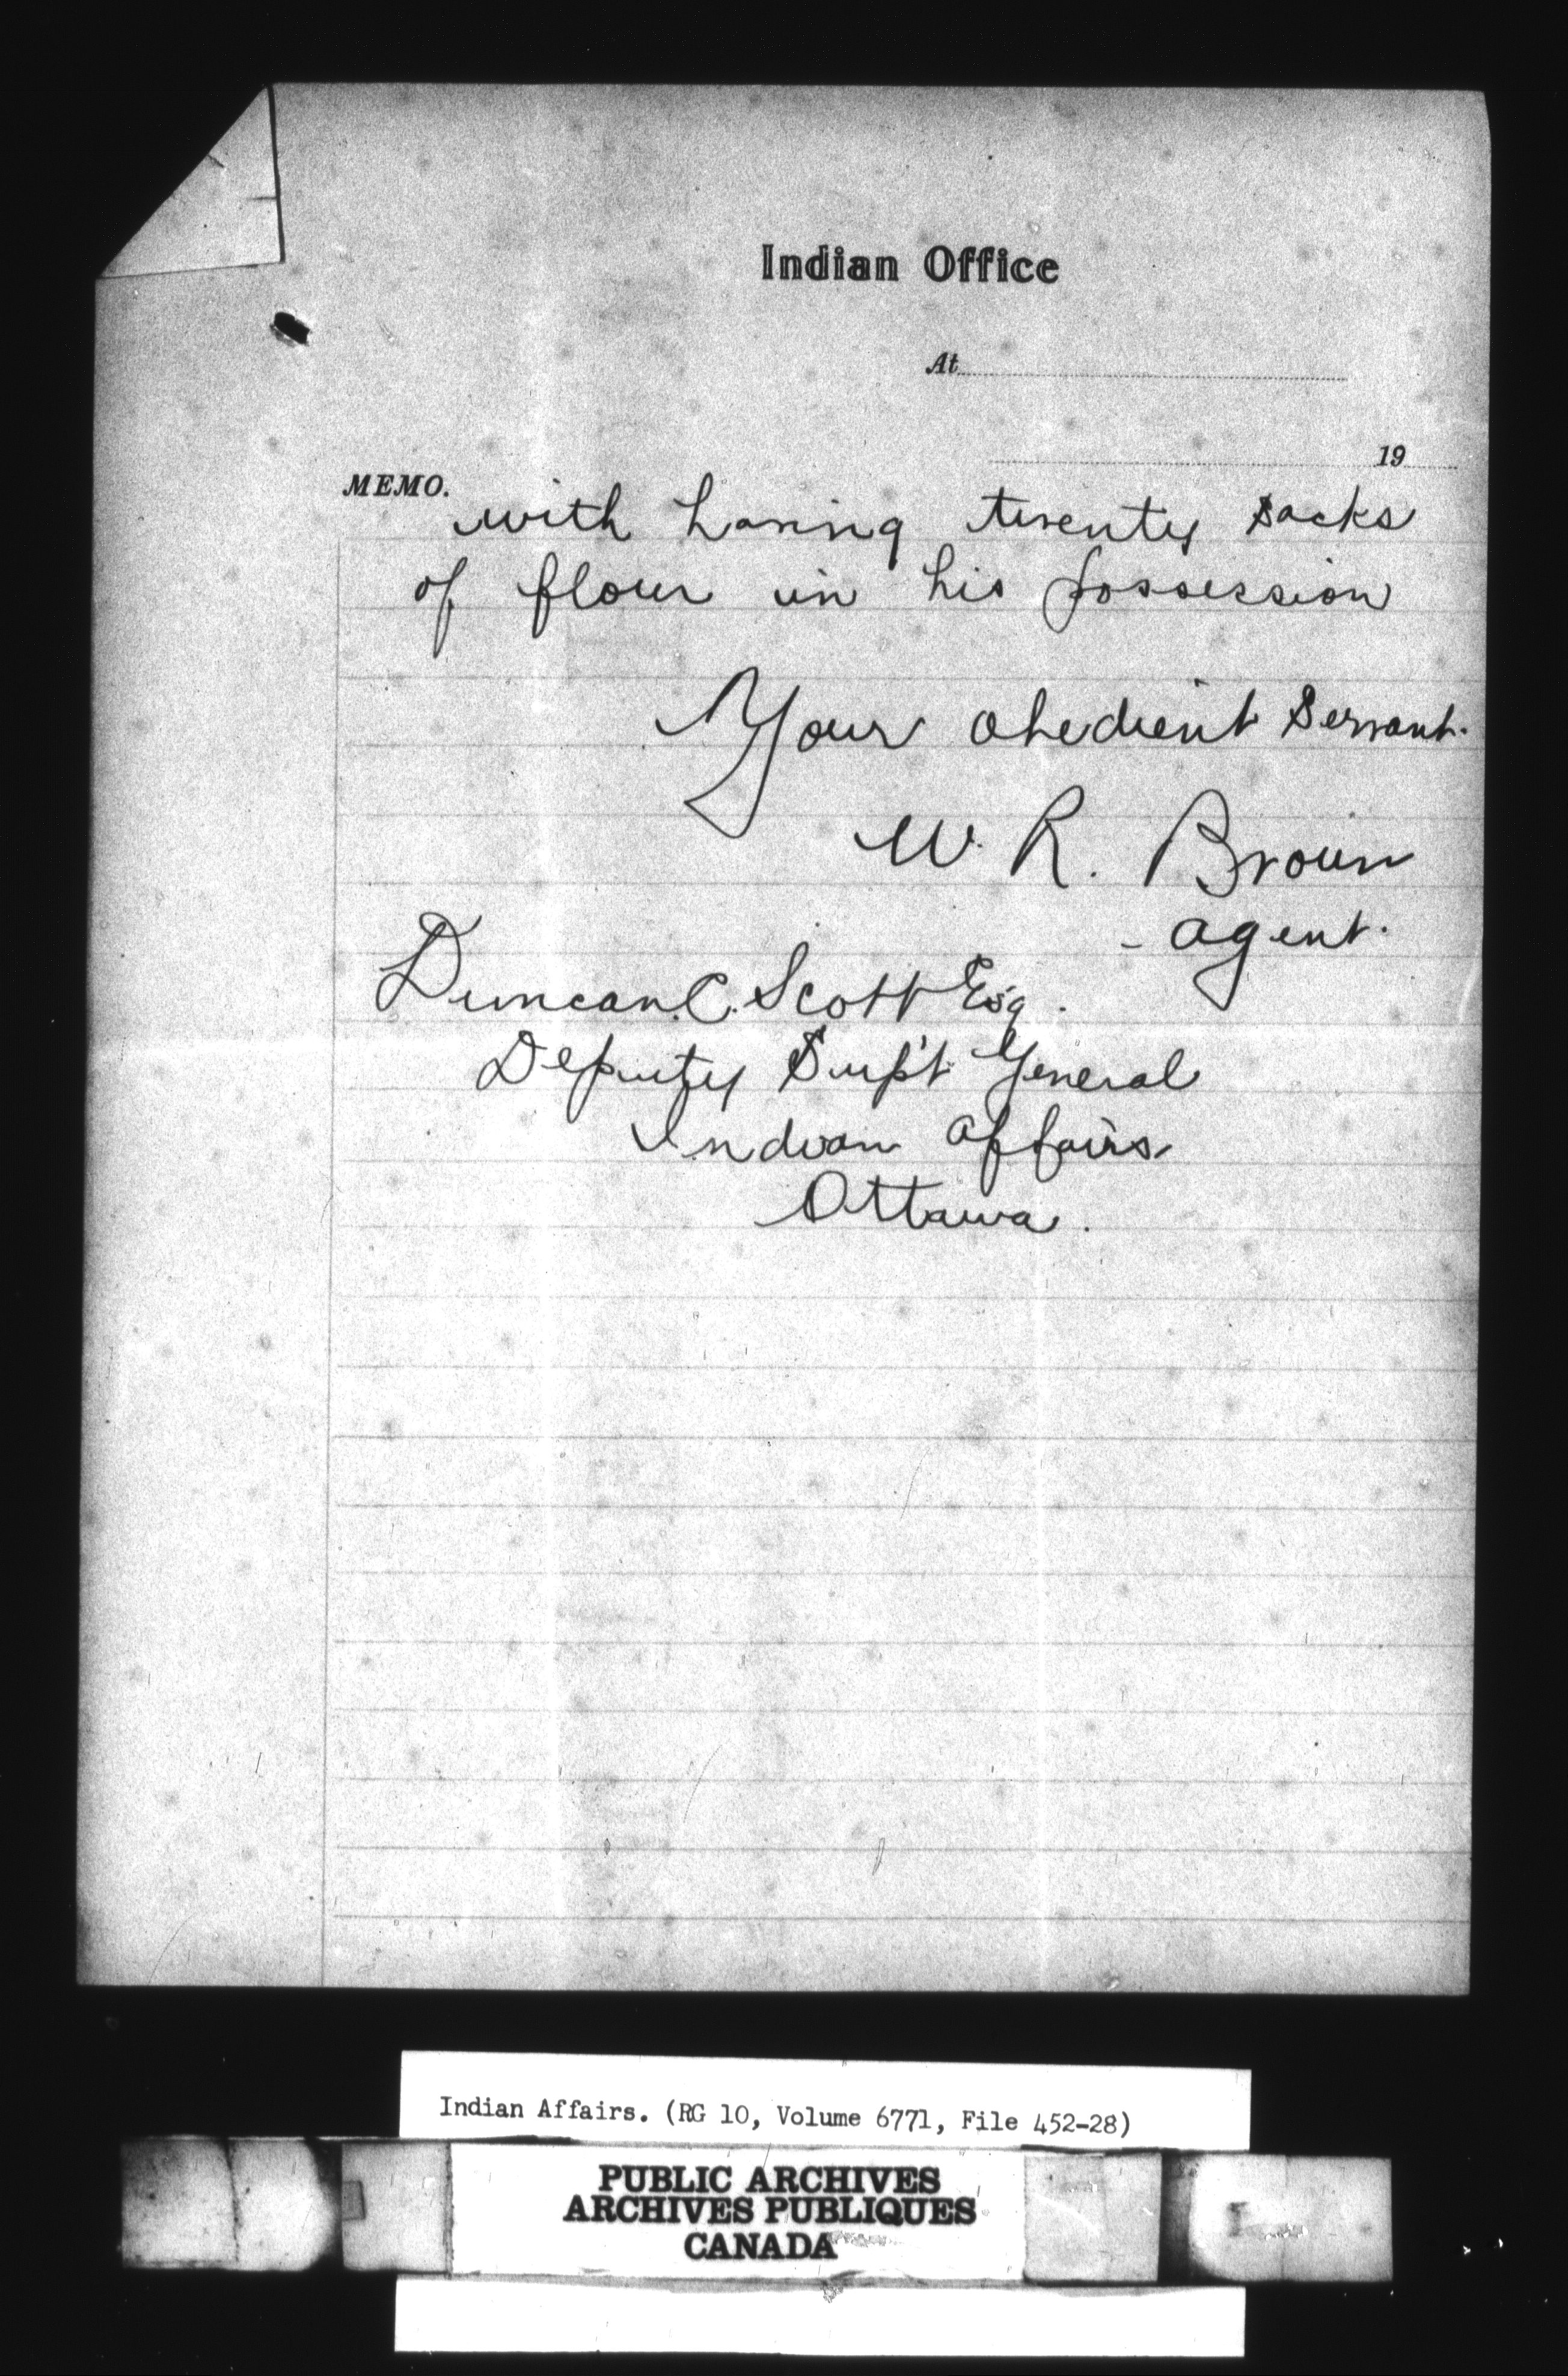 Indian Office
At
19
MEMO.
with having twenty sacks
of flour in his possession
Your obedient Servant.
W. R. Brown
- agent.
Duncan C. Scott Esq.
Deputy Sup't General
Indian Affairs.
Ottawa.
Indian Affairs. (RG 10, Volume 6771, File 452-28)
PUBLIC ARCHIVES
ARCHIVES PUBLIQUES
CANADA